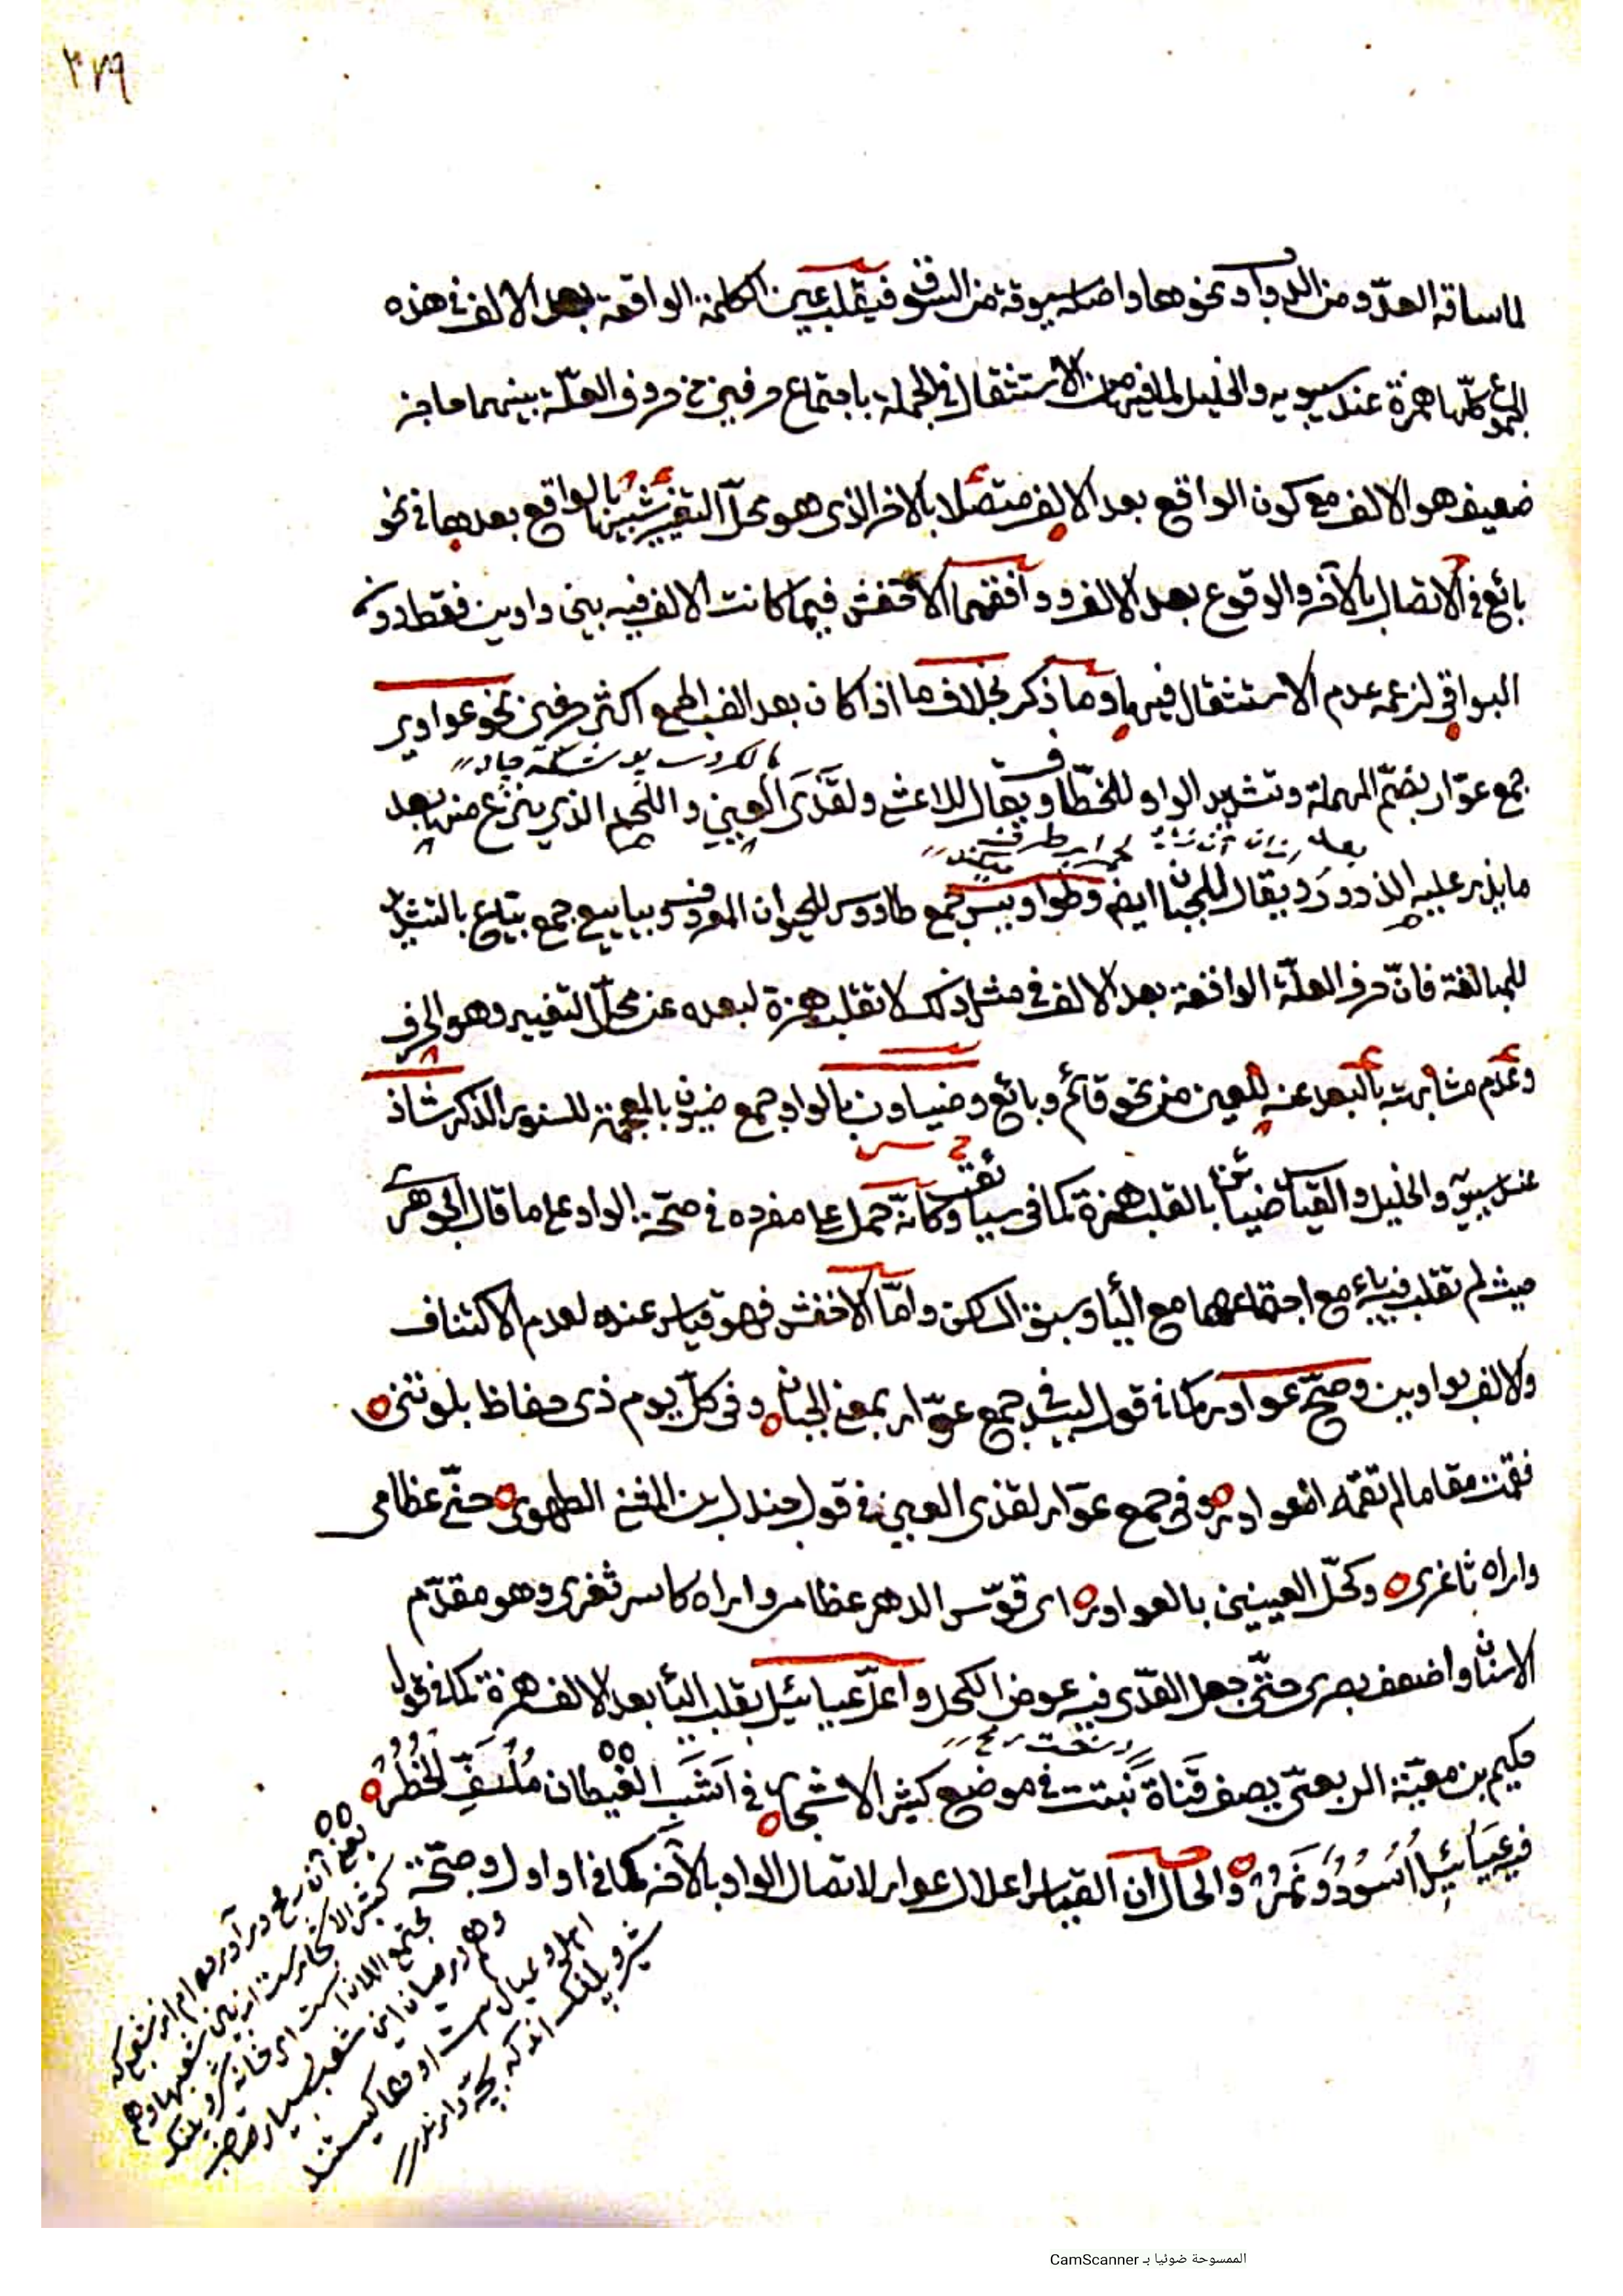 ٣٧٩
لما ساقه العدوّ من الدواب ونحوها واصله سيوقة من السوق فيقلب عين الكلمة الواقعة بعد الالف في هذه
الجموع كلّها همزة عند سيبويه والخليل لما فيها من الاستثقال في الجملة باجتماع حرفين من حروف العلّة بينهما حاجز
ضعيف هو الالف مع كون الواقع بعد الالف متصلا بالاخر الذي هو محلّ التغيير شبيها بالواقع بعدها في نحو
بائع في الاتصال بالآخر والوقوع بعد الالف ووافقهما الاخفش فيما كانت الالف فيه بين واوين فقط دون
البواقي لزعمه عدم الاستثقال فيها وما ذكر بخلاف ما اذا كان بعد الف الجمع اكثر من حرفين نحو عواوير
جمع عوّار بضمّ المهملة وتشديد الواو للخطّاف ويقال للاعشى ولقذى العين واللحم الذي ينزع منها بعد
ما يذر عليه الذرور ويقال للجبان ايضا وطواويس جمع طاووس للحيوان المعروف وبياييع جمع بيّاع بالتشديد
للمبالغة فانّ حرف العلّة الواقعة بعد الالف في مثل ذلك لا تقلب همزة لبعده عن محلّ التغيير وهو الحرف
وعدم مشابهته بالبعد عنه للعين من نحو قائم وبائع وضياون بالواو جمع ضيون بالمعجمة للسنور الذكر شاذ
عند سيبويه والخليل والقياس ضيائن بالقلب همزة كما في سيائق وكأنّه حمل على مفرده في صحّة الواو على ما قال الجوهري
حيث لم تقلب فيه ياء مع اجتماعهما مع الياء وسبق الساكن وامّا الاخفش فهو قياس عنده لعدم الاكتناف
ولالف بواوين وصحّ عواور كما في قول لبيد في جمع عوّار بمعنى الجبان وفي كلّ يوم ذي حفاظ بلوتني
فقمت مقاما لم تقمه العواور وفي جمع عوّار لقذى العين في قول جندل بن المثنى الطهوي حنّى عظامي
واراه ثاغري وكحّل العينين بالعواور اي قوّس الدهر عظامي واراه كاسر ثغري وهو مقدّم
الاسنان واضعف بصري حتّى جعل القذى فيه عوض الكحل واعلّ عيائيل بقلب الياء بعد الالف همزة كما في قول
حكيم بن معيّة الربعيّ يصف قناة نبتت في موضع كثير الاشجار في اشب الغيطان ملتفّ الحظر
فيه عيائيل اسود ونمر والحال ان القياس اعلال عواور لاتصال الواو بالآخر كما في اواول وصحّة
الممسوحة ضوئيا بـ CamScanner